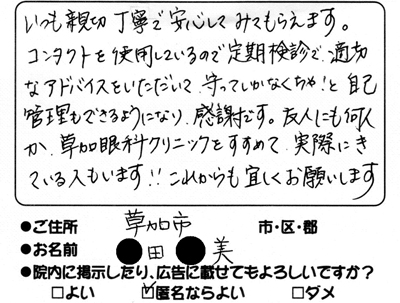 いつも親切丁寧で安心してみてもらえます。
コンタクトを使用しているので定期検診で、適切
なアドバイスをいただいて、守っていかなくちゃ!と自己
管理もできるようになり、感謝です。友人にも何人
か、草加眼科クリニックをすすめて、実際にき
ている人もいます!!これからも宜しくお願いします
●ご住所 草加市 市・区・郡
●お名前 ●田●美
●院内に掲示したり、広告に載せてもよろしいですか?
□よい ☑匿名ならよい □ダメ